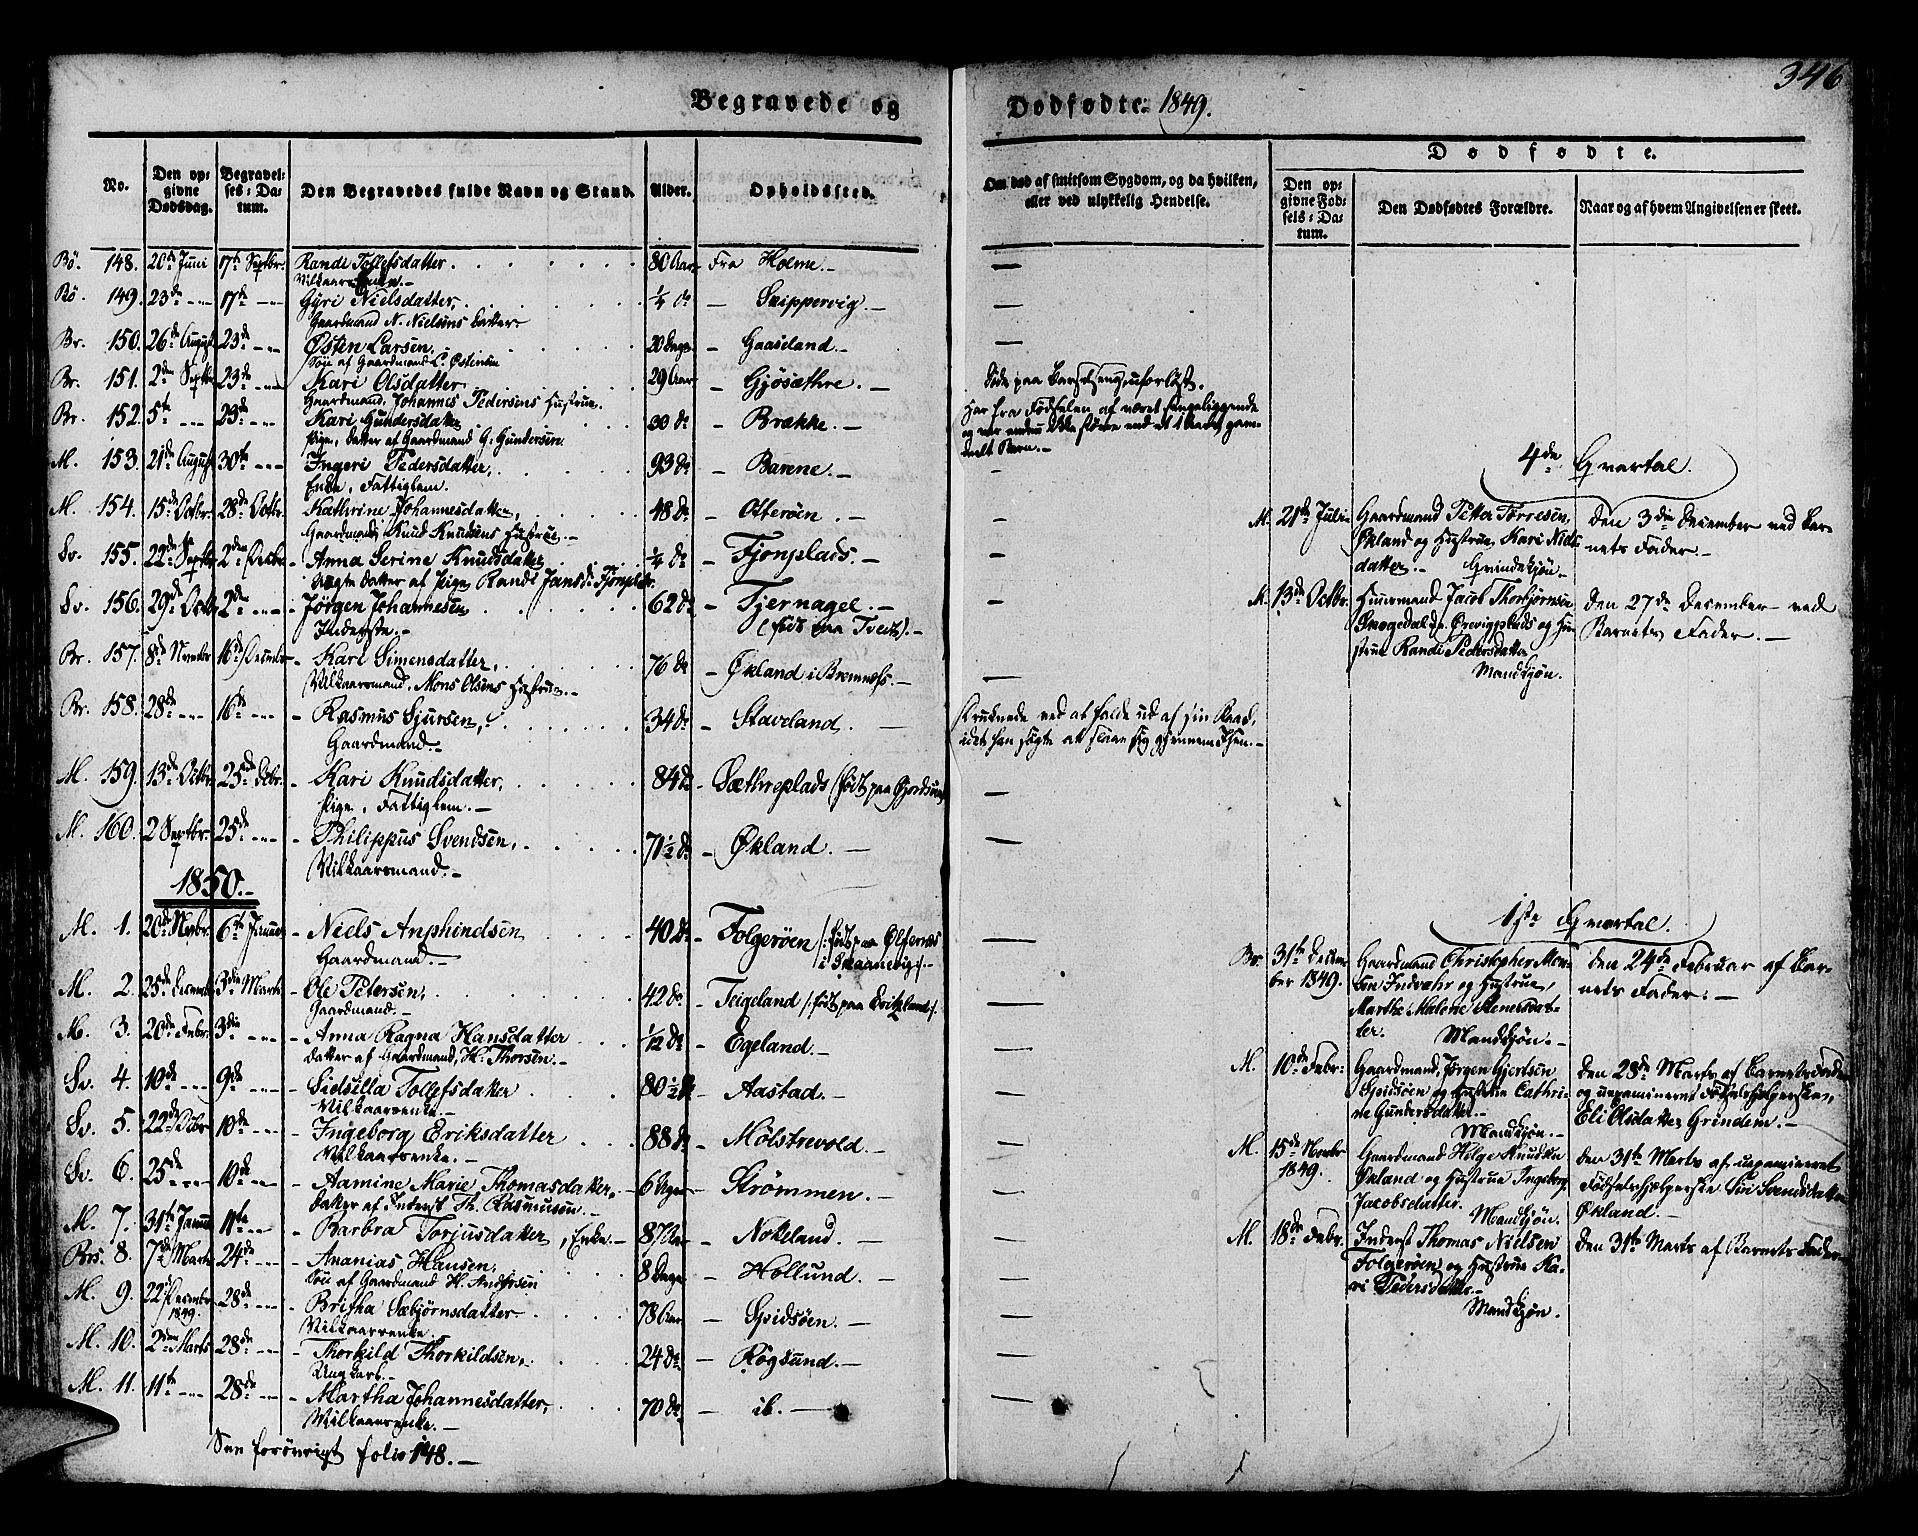 346
Begravede og Dødfødte. 1849.
No. Den opgivne Dødsdag. Begravelses-Datum. Den Begravedes fulde Navn og Stand. Alder. Opholdssted.
Om død af smitsom Sygdom, og da hvilken, eller ved ulykkelig Hendelse.
Dødfødte.
Den opgivne Fødsels-Datum. Den Dødfødtes Forældre. Naar og af hvem Angivelsen er skeet.
Bø. 148. 20de Juni 17de Septbr. Randi Tollefsdatter. 80 Aar Fra Holme.
Vilkaarsenke.
Bø. 149. 23de 17de Gyri Nielsdatter, 1/4 do Skippervig.
Gaardmand N. Nielsens Datter
Br. 150. 26de August 23de Østen Larsen. 20 Dage Gaaseland.
Søn af Gaardmand L. Østensen
Br. 151. 2den Septbr 23de Kari Olsdatter 29 Aar Gjøsæthre.
Gaardmand, Johannes Pedersens Hustrue.
Døde paa Barselseng, uforløst.
Br. 152. 5te 23de Kari Gundersdatter 30 do Brække.
Pige, Datter af Gaardmand G. Gundersen.
Har fra Fødselen af været sengeliggende
og var endnu ikke større end et 1 Aars gammelt Barn.
M. 153. 21de August 30te Ingeri Pedersdatter, 93 do Barene.
Enke, Fattiglem.
M. 154. 15de Octbr. 28de Octbr. Kathrine Johannesdatter, 48 do Otterøen.
Gaardmand, Knud Knudsens Hustrue.
Sv. 155. 22de Septbr 2den Decbr Anna Serine Knudsdatter 1/4 do Fjonplads.
Uægte Datter af Pige Randi Jansd. Fjonplads.
Sv. 156. 29de Octbr 2de Jørgen Johannesen 62 do Fjernagel.
Inderste. (født paa Tveit).
Br. 157. 8de Novbr 16de Decembr Kari Simensdatter, 76 do Økland i Bremnes.
Vilkaarsmand, Mons Olsens Hustrue.
Br. 158. 28de 16de Rasmus Sjursen, 34 do Staveland.
Gaardmand.
Druknede ved at falde ud af sin Baad,
idet han søgte at slaae sig gjennem Isen.
M. 159. 13de Octbr. 25de Decbr. Kari Knudsdatter, 84 do Sæthreplads (født paa
Pige, Fattiglem.
M. 160. 2 Septbr. 25de Philippus Svendsen, 71 1/2 do Økland.
Vilkaarsmand.
1850.
M. 1. 20de Novbr. 6te Januar Niels Anphindsen 40 do Folgerøen /:født paa Ølfernæs
Gaardmand. i Skaanevig:/.
M. 2. 25de Decembr 3die Marts Ole Petersen, 42 do Teigeland /:født paa
Gaardmand.
M. 3. 20de Febr. 3die Anna Ragna Hansdatter 1/12 do Egeland.
Datter af Gaardmand, H. Thorsen.
Sv. 4. 10de 9de Sidsilla Tollefsdatter 80 1/2 Aastad.
Vilkaarsenke.
Sv. 5. 22de Octbr 10de Ingeborg Eriksdatter 88 do Mølstrevold.
Vilkaarsenke.
Sv. 6. 25de 10de Aamine Marie Thomasdatter, 6 Uger Strømmen.
Datter af Inderst Th. Rasmussen.
M. 7. 31te Januar 11te Barbra Torjusdatter, Enke. 87 Aar Nokeland.
Brs. 8. 7de Marts 24de Ananias Hansen, 8 Dage Hollund.
Søn af Gaardmand H. Andersen
M. 9. 22de Decembr 1849. 28de Britha Sæbjørnsdatter 78 Aar Spidsøen.
Vilkaarsenke.
M. 10. 2den Marts 28de Thorkild Thorkildsen, 24 do Røgsund.
Ungkarl.
M. 11. 11te 28de Martha Johannesdatter, 70 do ib.
Vilkaarsenke.
See forøvrigt folio 148.
4de Qvartal.
M. 21de Juli Gaardmand Petter Torresen, Den 3die December ved Barnets Fader.
Økland og Hustrue Kari Nielsdatter. Qvindekjøn.
M. 13de Octbr. Huusmand Jacob Thorbjørnsen Den 27de December ved
Skogedal, Ørevigplads og Hustrue Randi Pedersdatter Barnets Fader.
Mandkjøn.
1ste Qvartal.
Br. 31te December 1849. Gaardmand Christopher Den 24de Februar af Barnets Fader.
Indvær og Hustrue,
Marthe Malene Steners datter. Mandkjøn.
M. 10de Febr. Gaardmand, Jørgen Gjertsen Den 28de Marts af Barnets Fader
Spidsøen og Hustrue Cathrine Gundersdatter. og uexamineret Fødselshjelperske,
Mandkjøn. Eli Olsdatter Grindem.
M. 15de Novbr 1849. Gaardmand Helge Knudsen Den 31te Marts af uexamineret
Økland og Hustrue Ingeborg Jacobsdatter. Fødselshjælperske Siri Svendsdatter
Mandkjøn. Økland.
M. 18de Febr. Inderst Thomas Nielsen Den 31te Marts af Barnets Fader
Folgerøen og Hustrue Kari Pedersdatter.
Mandkjøn.